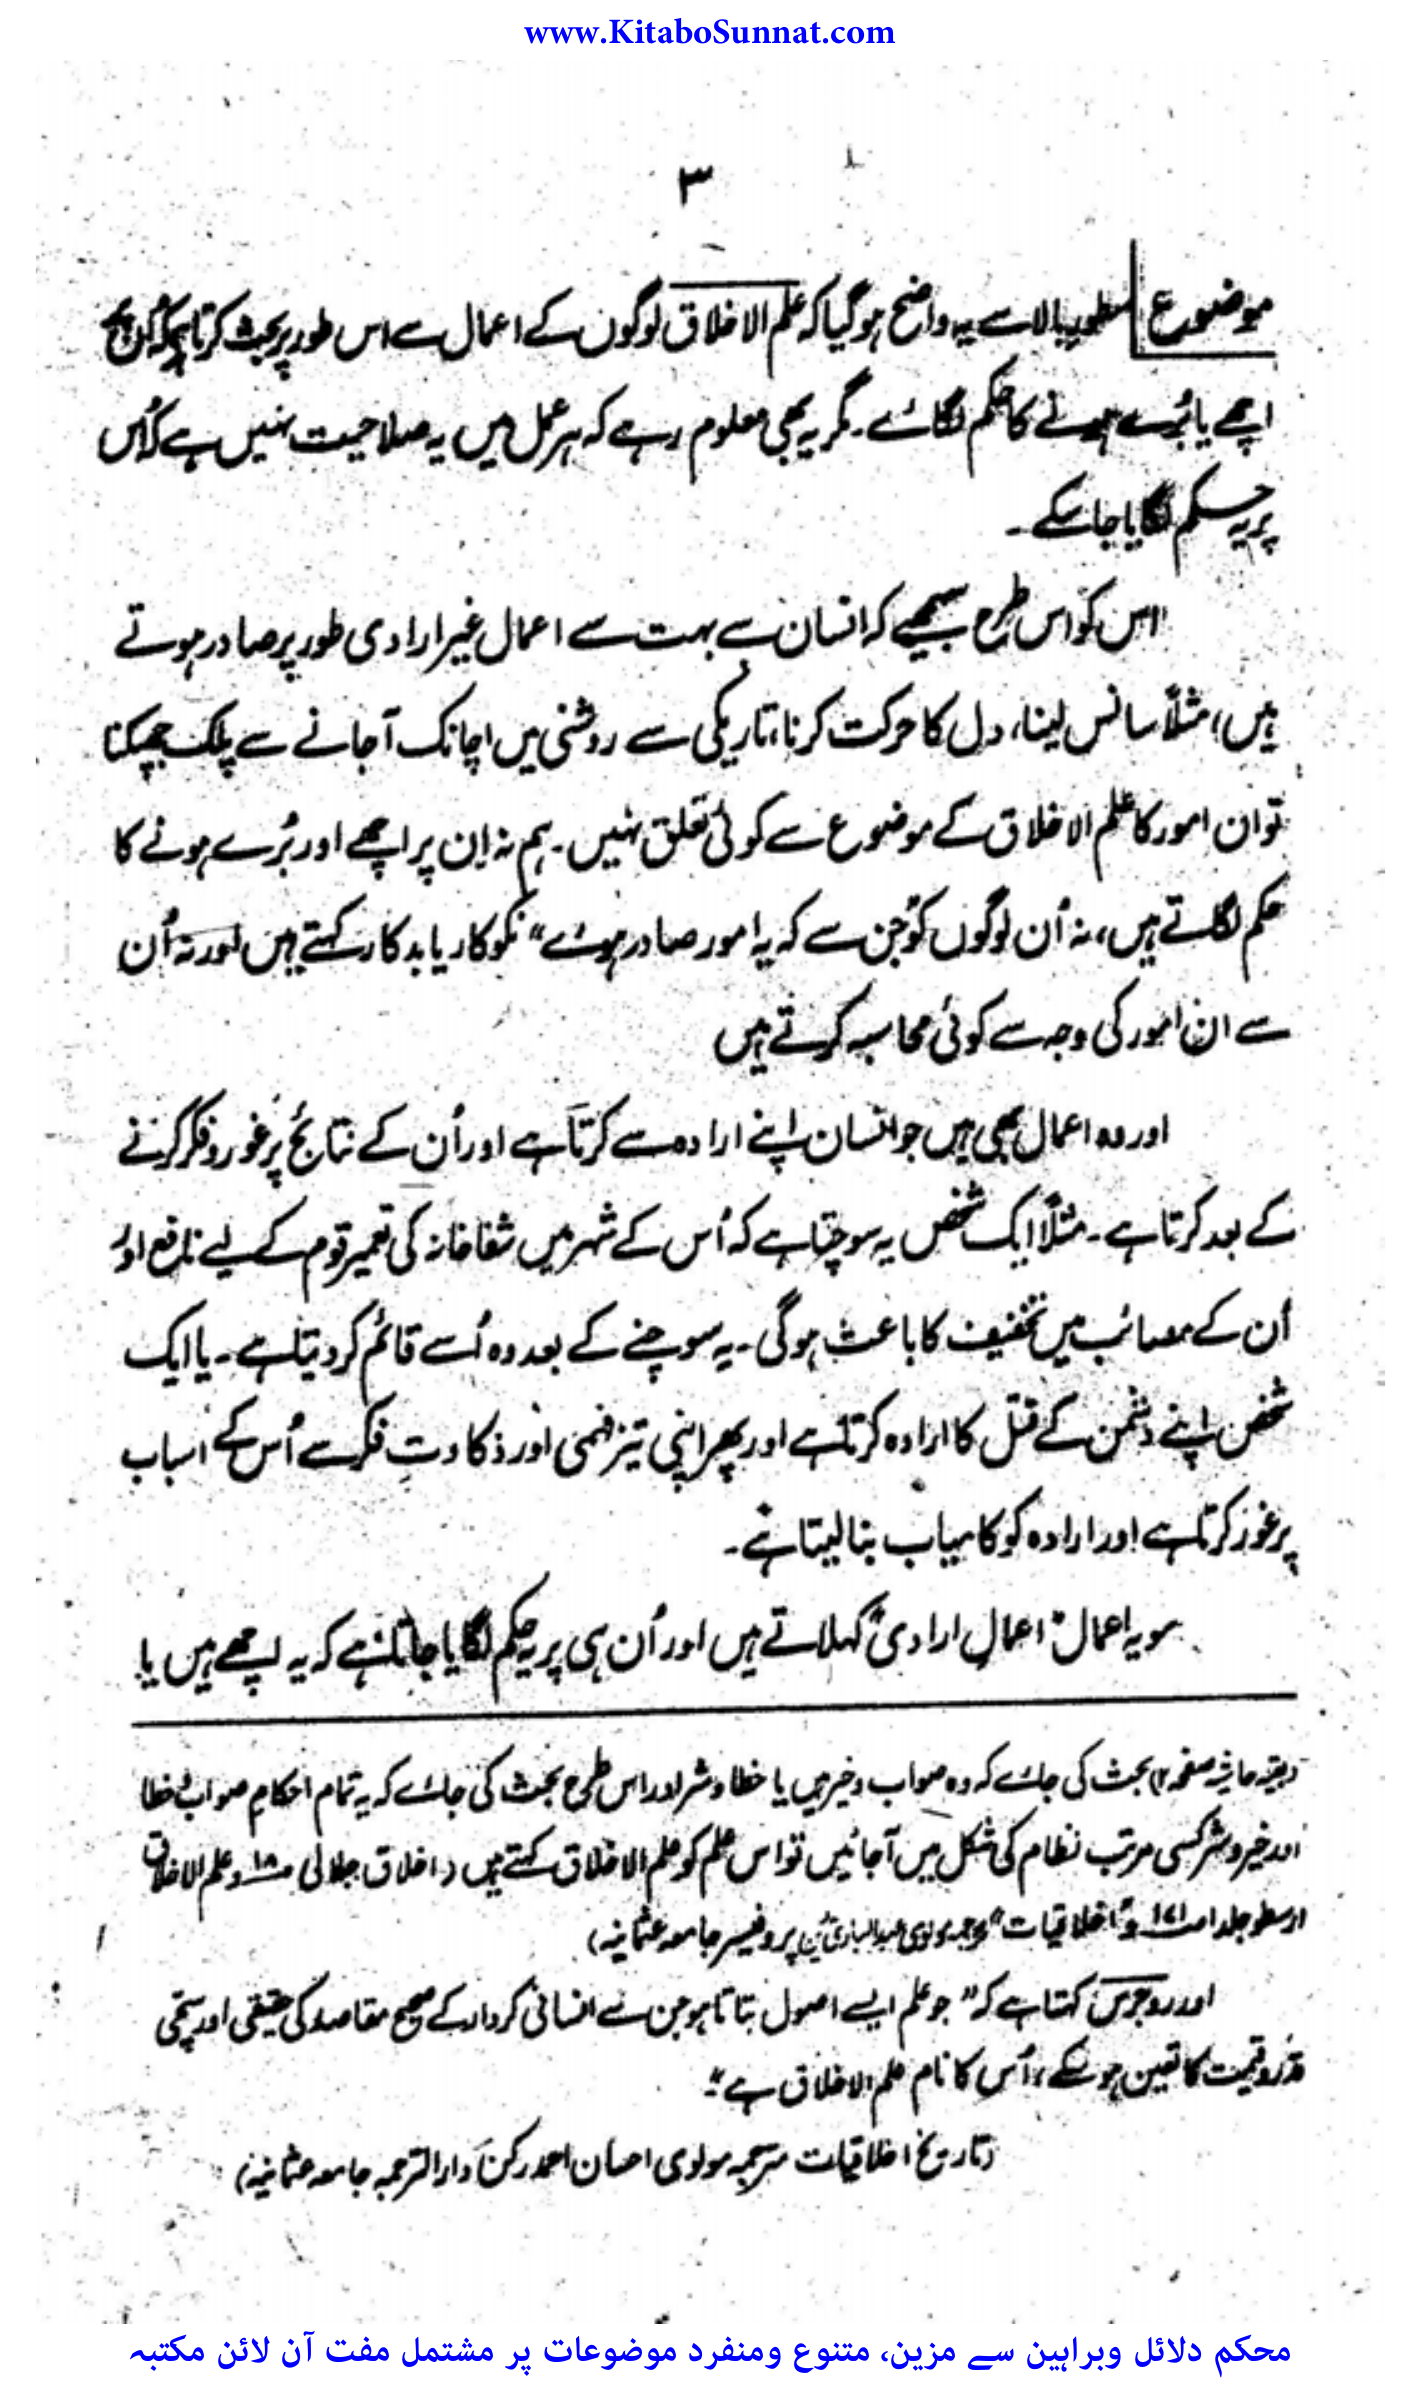 www.KitaboSunnat.com
۳
موضوع سطورِ بالا سے یہ واضح ہوگیا کہ علم الاخلاق لوگوں کے اعمال سے اس طور پر بحث کرتا ہے کہ اُن پر
اچھے یا بُرے ہونے کا حکم لگائے۔ مگر یہ بھی معلوم رہے کہ ہر عمل میں یہ صلاحیت نہیں ہے کہ اُس
پر یہ حکم لگایا جاسکے۔
اس کو اس طرح سمجھیے کہ انسان سے بہت سے اعمال غیر ارادی طور پر صادر ہوتے
ہیں، مثلاً سانس لینا، دل کا حرکت کرنا، تاریکی سے روشنی میں اچانک آجانے سے پلک جھپکنا
تو ان امور کا علم الاخلاق کے موضوع سے کوئی تعلق نہیں۔ ہم نہ اِن پر اچھے اور بُرے ہونے کا
حکم لگاتے ہیں، نہ اُن لوگوں کو جن سے کہ یہ امور صادر ہوئے “نکوکار یا بدکار کہتے ہیں اور نہ اُن
سے ان امور کی وجہ سے کوئی محاسبہ کرتے ہیں
اور وہ اعمال بھی ہیں جو انسان اپنے ارادہ سے کرتا ہے اور اُن کے نتائج پر غور و فکر کرنے
کے بعد کرتا ہے۔ مثلاً ایک شخص یہ سوچتا ہے کہ اُس کے شہر میں شفاخانہ کی تعمیر قوم کے لیے نافع اور
اُن کے مصائب میں تخفیف کا باعث ہوگی۔ یہ سوچنے کے بعد وہ اُسے قائم کردیتا ہے۔ یا ایک
شخص اپنے دشمن کے قتل کا ارادہ کرتا ہے اور پھر اپنی تیز فہمی اور ذکاوتِ فکر سے اُس کے اسباب
پر غور کرتا ہے اور ارادہ کو کامیاب بنا لیتا ہے۔
سو یہ اعمال “اعمالِ ارادی” کہلاتے ہیں اور اُن ہی پر یہ حکم لگایا جاتا ہے کہ یہ اچھے ہیں یا
(بقیہ حاشیہ صفحہ ۲) بحث کی جائے کہ وہ صواب و خیر ہیں یا خطا و شر اور اس طرح بحث کی جائے کہ یہ تمام احکامِ صواب و خطا
اور خیر و شر کسی مرتب نظام کی شکل میں آجائیں تو اس علم کو علم الاخلاق کہتے ہیں (اخلاق جلالی ص ۱۸ و علم الاخلاق
ارسطو جلد ۱ ص ۱۷۱ و “اخلاقیات” ترجمہ مولوی عبدالباری پروفیسر جامعہ عثمانیہ)
اور روجرس کہتا ہے کہ “جو علم ایسے اصول بتاتا ہو جن سے انسانی کردار کے صحیح مقاصد کی حقیقی اور سچی
قدر و قیمت کا تعین ہوسکے، اُس کا نام علم الاخلاق ہے”
(تاریخ اخلاقیات مترجمہ مولوی احسان احمد رکن دارالترجمہ جامعہ عثمانیہ)
محکم دلائل وبراہین سے مزین، متنوع ومنفرد موضوعات پر مشتمل مفت آن لائن مکتبہ